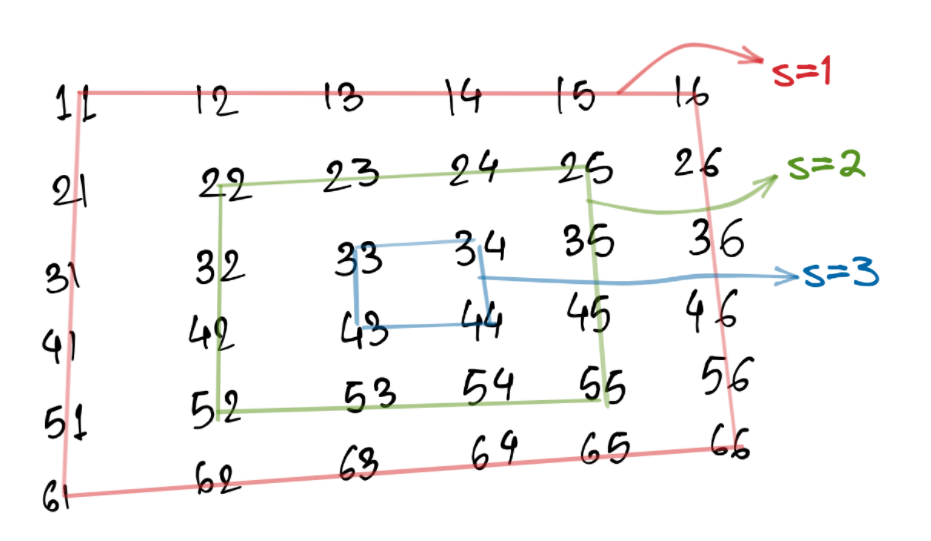 11 12 13 14 15 16 s=1
21 22 23 24 25 26 s=2
31 32 33 34 35 36 s=3
41 42 43 44 45 46
51 52 53 54 55 56
61 62 63 64 65 66